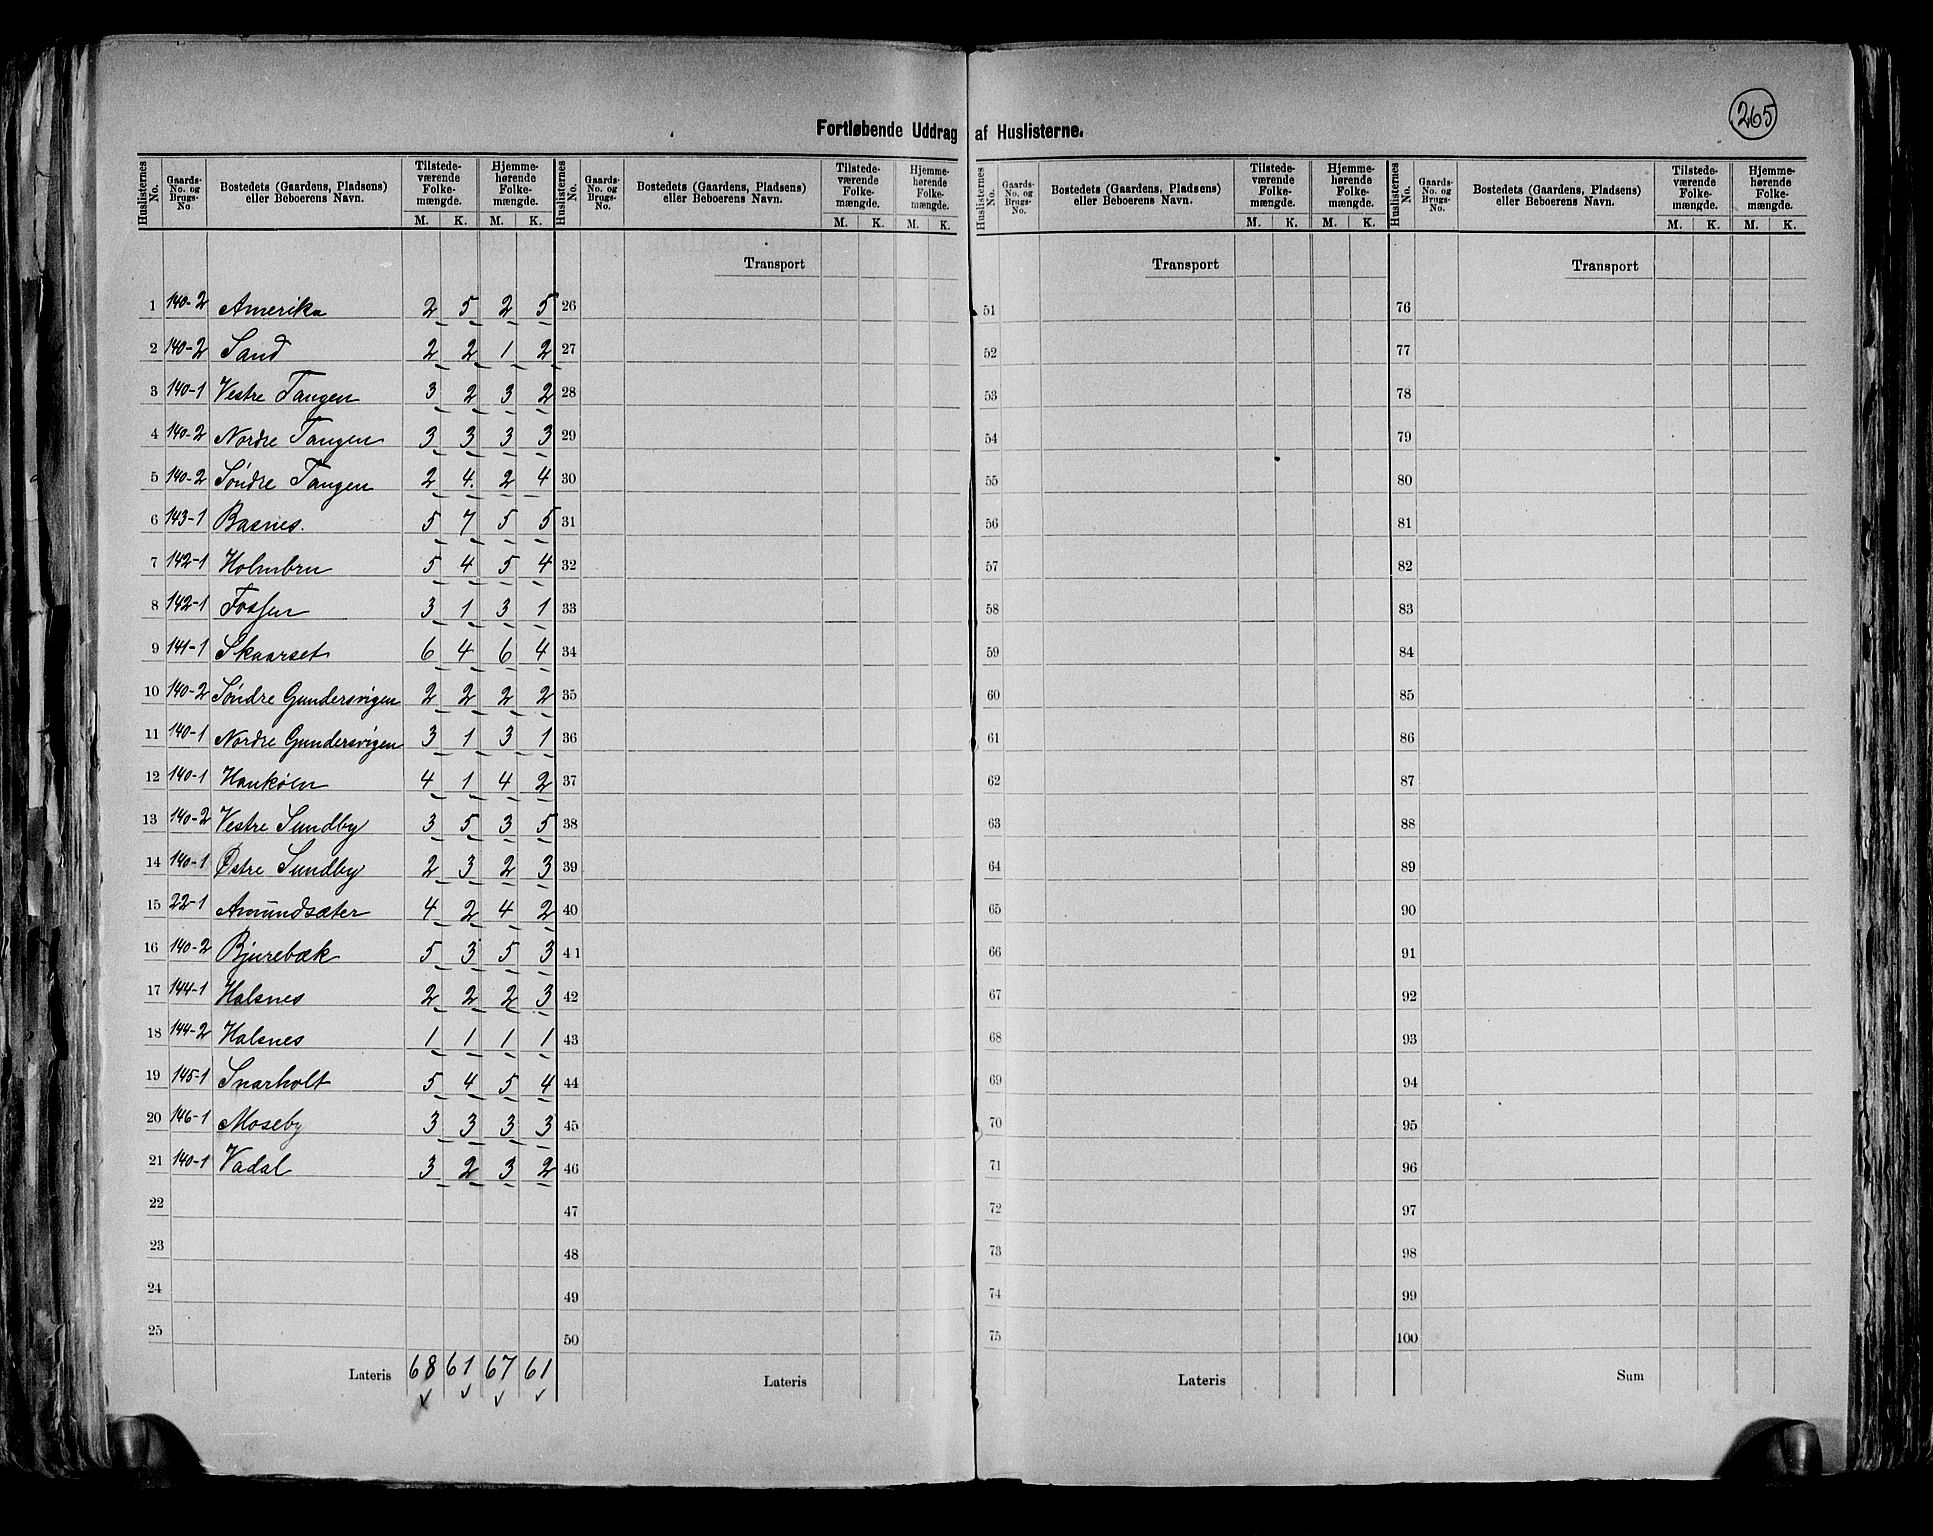 265
Fortløbende Uddrag af Huslisterne.
Huslisternes No. | Gaards-No. og Brugs-No. | Bostedets (Gaardens, Pladsens) eller Beboerens Navn. | Tilstedeværende Folkemængde. M. K. | Hjemmehørende Folkemængde. M. K.
Huslisternes No. | Gaards-No. og Brugs-No. | Bostedets (Gaardens, Pladsens) eller Beboerens Navn. | Tilstedeværende Folkemængde. M. K. | Hjemmehørende Folkemængde. M. K.
Huslisternes No. | Gaards-No. og Brugs-No. | Bostedets (Gaardens, Pladsens) eller Beboerens Navn. | Tilstedeværende Folkemængde. M. K. | Hjemmehørende Folkemængde. M. K.
Huslisternes No. | Gaards-No. og Brugs-No. | Bostedets (Gaardens, Pladsens) eller Beboerens Navn. | Tilstedeværende Folkemængde. M. K. | Hjemmehørende Folkemængde. M. K.
Transport Transport Transport
1 140-2 Amerika 2 5 2 5 26 51 76
2 140-2 Sand 2 2 1 2 27 52 77
3 140-1 Vestre Tangen 3 2 3 2 28 53 78
4 140-2 Nordre Tangen 3 3 3 3 29 54 79
5 140-2 Søndre Tangen 2 4 2 4 30 55 80
6 143-1 Basnes. 5 7 5 5 31 56 81
7 142-1 Holmbru 5 4 5 4 32 57 82
8 142-1 Fossen 3 1 3 1 33 58 83
9 141-1 Skaarset 6 4 6 4 34 59 84
10 140-2 Søndre Gundersvigen 2 2 2 2 35 60 85
11 140-1 Nordre Gundersvigen 3 1 3 1 36 61 86
12 140-1 4 1 4 2 37 62 87
13 140-2 Vestre Sundby 3 5 3 5 38 63 88
14 140-1 Østre Sundby 2 3 2 3 39 64 89
15 22-1 Amundsæter 4 2 4 2 40 65 90
16 140-2 Bjurebæk 5 3 5 3 41 66 91
17 144-1 Halsnes 2 2 2 3 42 67 92
18 144-2 Halsnes 1 1 1 1 43 68 93
19 145-1 Snarholt 5 4 5 4 44 69 94
20 146-1 Moseby 3 3 3 3 45 70 95
21 140-1 Vadal 3 2 3 2 46 71 96
22 47 72 97
23 48 73 98
24 49 74 99
25 50 75 100
Lateris 68 61 67 61 Lateris Lateris Sum